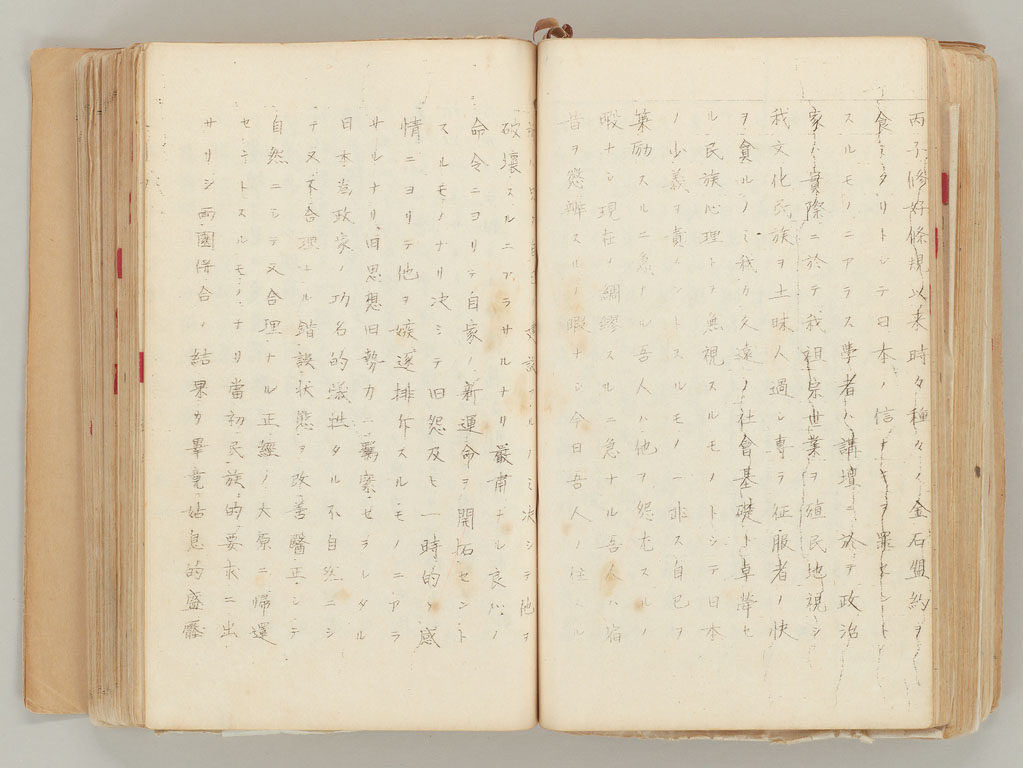 丙子修好條規以来時々種々ノ金石盟約ヲ
食ミタリトシテ日本ノ信ナキヲ罪セント
スルモノニアラス學者ハ講壇ニ於テ政治
家ハ實際ニ於テ我祖宗世業ヲ殖民地視シ
我文化民族ヲ土昧人遇シ專ラ征服者ノ快
ヲ貪ルノミ我カ久遠ノ社會基礎ト卓犖セ
ル民族心理トヲ無視スルモノトシテ日本
ノ少義ヲ責メントスルモノニ非ス自己ヲ
策励スルニ急ナル吾人ハ他ヲ怨尤スルノ
暇ナシ現在ヲ綢繆スルニ急ナル吾人ハ宿
昔ヲ懲辨スルノ暇ナシ今日吾人ノ任スル
ノミ決シテ他ヲ
破壞スルニアラサルナリ嚴肅ナル良心ノ
命令ニヨリテ自家ノ新運命ヲ開拓セント
スルモノナリ决シテ旧怨及ヒ一時的ノ感
情ニヨリテ他ヲ嫉逐排斥スルモノニアラ
サルナリ旧思想旧勢力ニ羈縻セラレタル
日本為政家ノ功名的犠牲タル不自然ニシ
テ又不合理ナル錯誤状態ヲ改善醫正シテ
自然ニシテ又合理ナル正經ノ大原ニ帰還
セシメントスルモノナリ當初民族的要求ニ出
サリシ両國併合ノ結果カ畢竟姑息的威壓